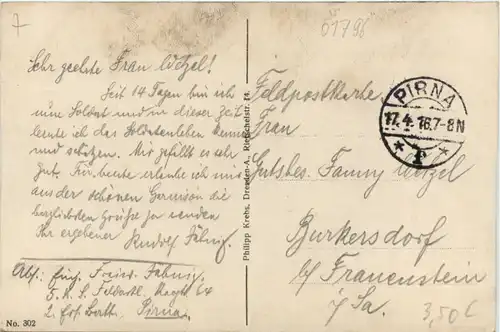 7
01796
Sehr geehrte Frau Wetzel!
Seit 14 Tagen bin ich
nun Soldat und in dieser Zeit
lernte ich das Soldatenleben kennen
und schätzen. Mir gefällt es sehr
gut. Für heute erlaube ich mir
aus der schönen Garnison die
herzlichsten Grüße zu senden
Ihr ergebener Rudolf
Abs: Einj. Freiw.
5. K. S. Feldartl. Regt 64
2. Ers. Batt. Pirna.
No. 302
Philipp Krebs, Dresden-A., Rietschelstr. 14.
Feldpostkarte
PIRNA
17.4.16.7-8N
Frau
Gutsbes. Fanny Wetzel
Burkersdorf
b/ Frauenstein
i/ Sa.
3,50 €